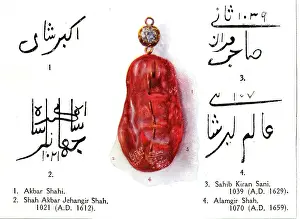 اکبر شاهی
1.
2.
١٠٣٩ ثانی
صاحب قران
3.
١٠٧٠
عالمگیر شاه
4.
1. Akbar Shahi.
2. Shah Akbar Jehangir Shah,
1021 (A.D. 1612).
3. Sahib Kiran Sani,
1039 (A.D. 1629).
4. Alamgir Shah,
1070 (A.D. 1659).